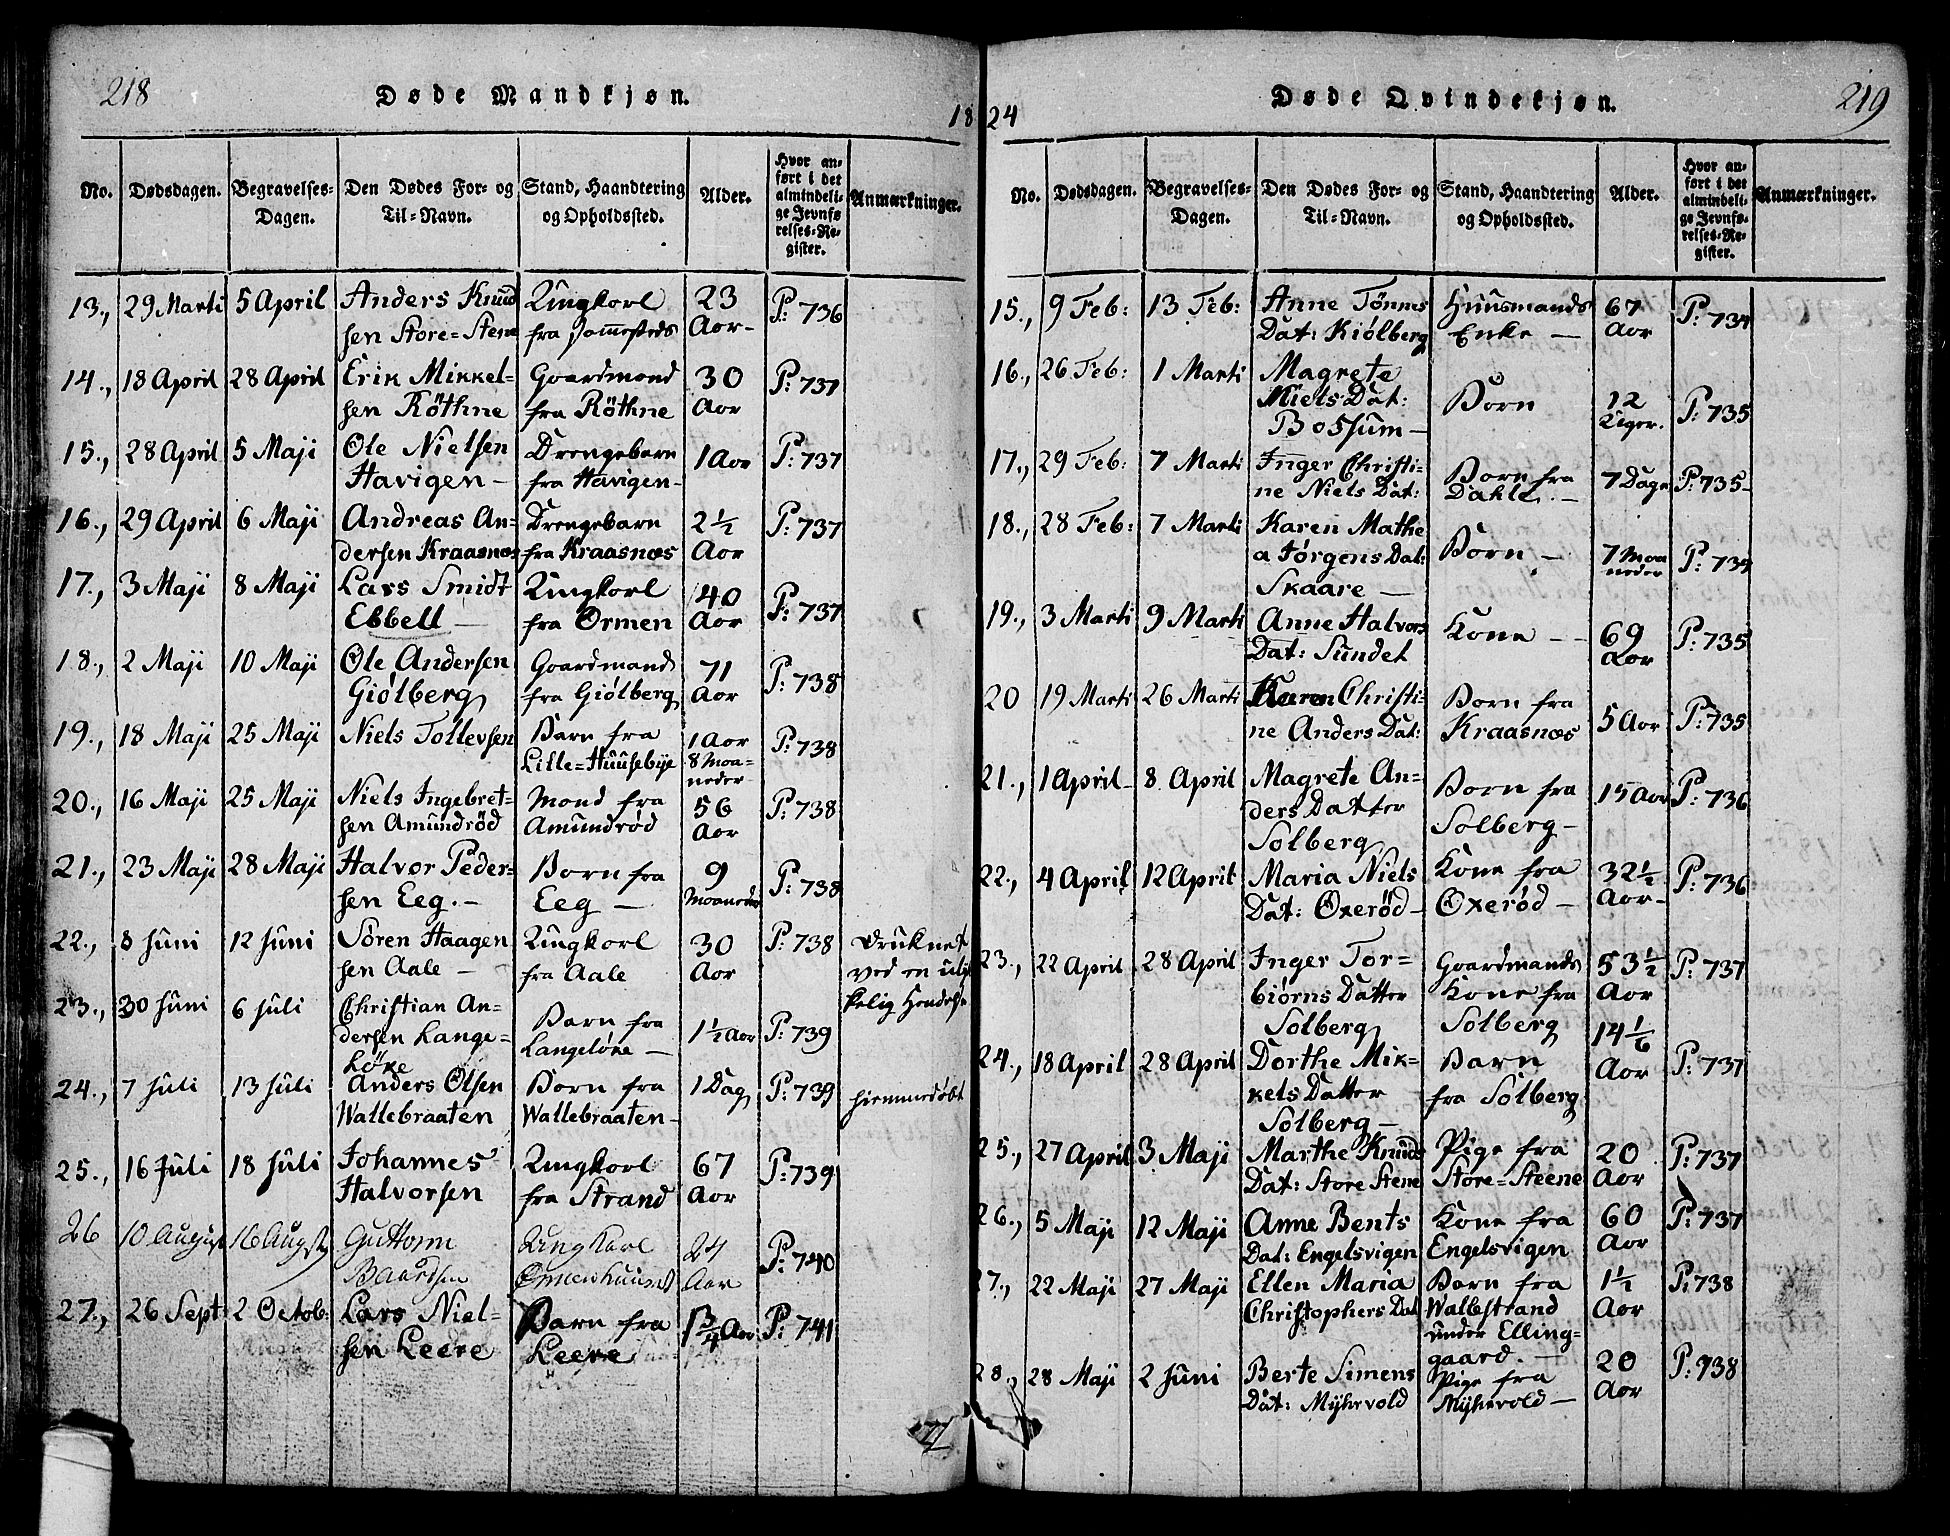 218
Døde Mandkjøn.
18
No.
Dødsdagen.
Begravelses-
Dagen.
Den Dødes For- og
Til-Navn.
Stand, Haandtering
og Opholdssted.
Alder.
Hvor an-
ført i det
almindeli-
ge Jevnfø
relses-Re-
gister.
Anmærkninger.
13., 29 Marti 5 April Anders Knud Ungkarl 23 P: 736
sen Store=Stene fra Aar-
14., 18 April 28 April Erik Mikkel- Gaardmand 30 P: 737
sen Röthne fra Röthne Aar
15., 28 April 5 Maji Ole Nielsen Drengebarn 1 Aar P: 737
Havigen- fra Havigen-
16., 29 April 6 Maji Andreas An- Drengebarn 2½ P: 737
dersen Kraasnæs fra Kraasnæs Aar
17., 3 Maji 8 Maji Lars Smidt Ungkarl 40 P: 737
Ebbell - fra Ormen Aar
18., 2 Maji 10 Maji Ole Andersen Gaardmand 71 P: 738
Giölberg fra Giölberg Aar
19., 18 Maji 25 Maji Niels Tollevsen Barn fra 1 Aar P: 738
Lille=Huusebye 8 Maa-
neder
20., 16 Maji 25 Maji Niels Ingebret- Mand fra 56 P: 738
sen Amundröd Amundröd Aar
21., 23 Maji 28 Maji Halvor Peder- Barn fra 9 P: 738
sen Eeg.- Eeg - Maaneder
22., 8 Juni 12 Juni Sören Haagen Ungkarl 30 P: 738 druknet
sen Aale - fra Aale Aar ved en ulyk
23., 30 Juni 6 Juli Christian An- Barn fra 1½ Aar P: 739 kelig Hendelse
dersen Lange- Langelöxe -
Löxe
24., 7 Juli 13 Juli Anders Olsen Barn fra 1 Dag P: 739 hiemmedöbt
Wallebraaten Wallebraaten-
25., 16 Juli 18 Juli Johannes Ungkarl 67 P: 739
Halvorsen fra Strand Aar
26 10 August 16 Augst Guttorm Ungkarl 24 P: 740
Baardsen Aar
27., 26 Sept 2 Octob: Lars Niel- Barn fra 1¾ Aar P: 741
sen Leere Leere
24
Døde Qvindekjøn.
219
No.
Dødsdagen.
Begravelses-
Dagen.
Den Dødes For- og
Til-Navn.
Stand, Haandtering
og Opholdssted.
Alder.
Hvor an-
ført i det
almindeli-
ge Jevnfø-
relses-Re-
gister.
Anmærkninger.
15., 9 Feb: 13 Feb: Anne Tönnes Huusmands 67 P: 734
Dat: Kiölberg Enke - Aar
16., 26 Feb: 1 Marti Magrete
Niels Dat: Barn 12 P: 735
Bossum - Uger.
17., 29 Feb: 7 Marti Inger Christi- Barn fra 7 Dage P: 735-
ne Niels Dat: Dahle.-
18., 28 Feb: 7 Marti Karen Mathe
a Jörgens Dat: Barn - 7 Maa P: 735
Skaare - neder
19., 3 Marti 9 Marti Anne Halvors Kone - 69 P: 735
Dat: Sundet Aar
20 19 Marti 26 Marti Karen Christi- Barn fra 5 Aar P: 735
ne Anders Dat: Kraasnæs
21., 1 April- 8 April Magrete An- Barn fra 15 Aar P: 736
ders Datter Solberg-
Solberg
22., 4 April 12 April Maria Niels Kone fra 32½ P: 736
Dat: Oxeröd- Oxeröd- Aar-
23., 22 April 28 April Inger Tor- Gaardmands 53½ P: 737
biörns Datter Kone fra Aar
Solberg Solberg 14 1/6
24., 18 April 28 April Dorthe Mik- Barn Aar P: 737
kels Datter fra Solberg
Solberg -
25., 27 April 3 Maji Marthe Knuds Pige fra 20 P: 737
Dat: Store Stene Store=Steene Aar
26., 5 Maji 12 Maji Anne Bents Kone fra 60 P: 737
Dat: Engelsvigen Engelsvigen Aar
27., 22 Maji 27 Maji Ellen Maria Barn fra 1½ P: 738
Christophers Dat Wallestrand Aar
under Elling-
gaard.-
28., 28 Maji 2 Juni Berte Simens Pige fra 20 P: 738
Dat: Myhrvold Myhrvold- Aar